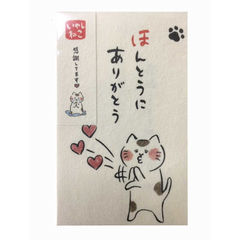 いやし
ねこ
感謝してます
ほんとうに
ありがとう